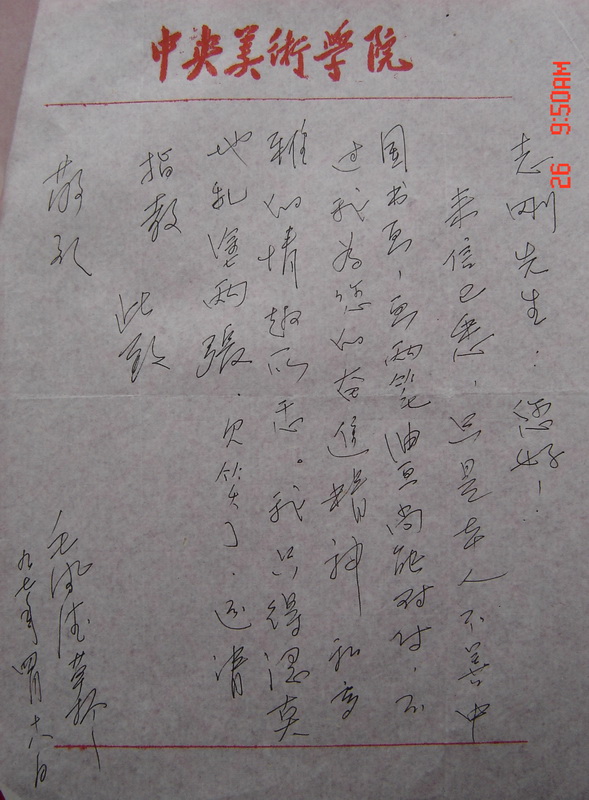 中央美術学院
志刚先生：您好！
来信已悉，只是本人不善中
国书画，画两笔油画尚能对付，不
过我为您的奋進精神和高
雅的情趣所
我只得濡墨
地乱塗两張．见笑了．还请
指教
此致
敬礼
九七年四月十八日
26 9:50AM